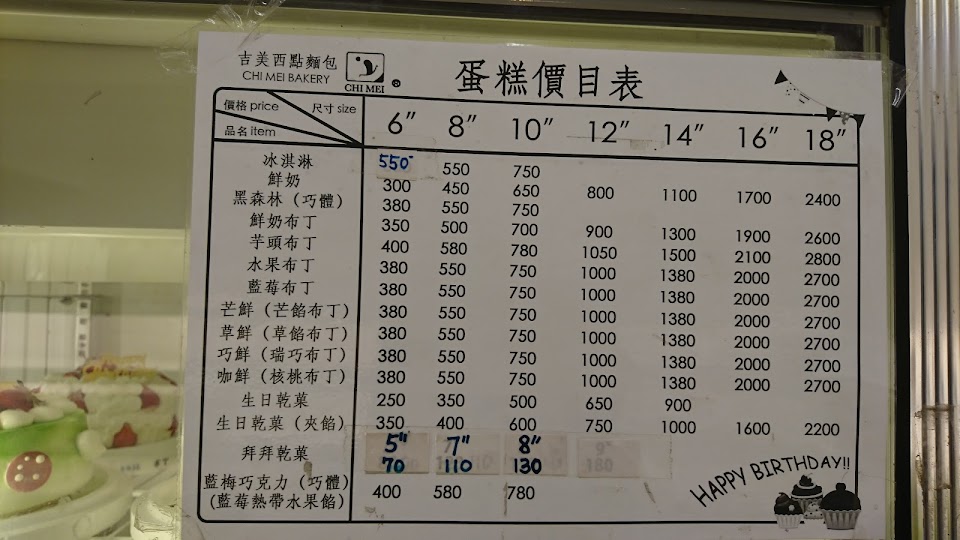 吉美西點麵包
CHI MEI BAKERY
CHI MEI ®
蛋糕價目表
價格 price 尺寸 size
品名 item
6” 8” 10” 12” 14” 16” 18”
冰淇淋 550- 550 750
鮮奶 300 450 650 800 1100 1700 2400
黑森林（巧體） 380 550 750
鮮奶布丁 350 500 700 900 1300 1900 2600
芋頭布丁 400 580 780 1050 1500 2100 2800
水果布丁 380 550 750 1000 1380 2000 2700
藍莓布丁 380 550 750 1000 1380 2000 2700
芒鮮（芒餡布丁） 380 550 750 1000 1380 2000 2700
草鮮（草餡布丁） 380 550 750 1000 1380 2000 2700
巧鮮（瑞巧布丁） 380 550 750 1000 1380 2000 2700
咖鮮（核桃布丁） 380 550 750 1000 1380 2000 2700
生日乾菓 250 350 500 650 900
生日乾菓（夾餡） 350 400 600 750 1000 1600 2200
5" 7" 8" 9"
拜拜乾菓 70 110 130 180
藍梅巧克力（巧體） 400 580 780
（藍莓熱帶水果餡）
HAPPY BIRTHDAY!!